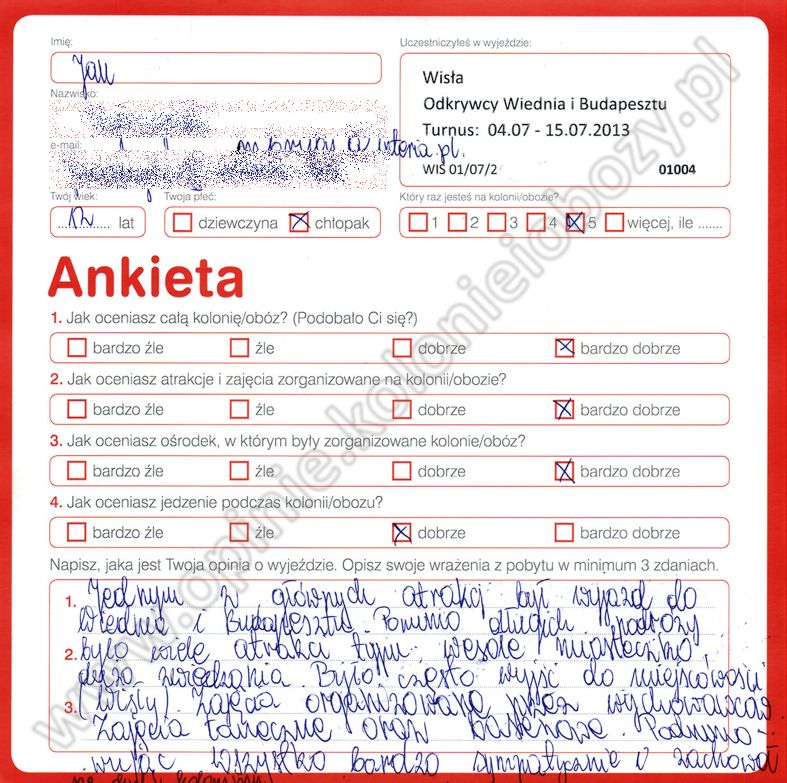 Imię:
Jan
Uczestniczyłeś w wyjeździe:
Wisła
Odkrywcy Wiednia i Budapesztu
Turnus: 04.07 - 15.07.2013
WIS 01/07/2 01004
Nazwisko:
e-mail:
@interia.pl.
Twój wiek:
12 lat
Twoja płeć:
dziewczyna chłopak
Który raz jesteś na kolonii/obozie?
1 2 3 4 5 więcej, ile .......
Ankieta
1. Jak oceniasz całą kolonię/obóz? (Podobało Ci się?)
bardzo źle źle dobrze bardzo dobrze
2. Jak oceniasz atrakcje i zajęcia zorganizowane na kolonii/obozie?
bardzo źle źle dobrze bardzo dobrze
3. Jak oceniasz ośrodek, w którym były zorganizowane kolonie/obóz?
bardzo źle źle dobrze bardzo dobrze
4. Jak oceniasz jedzenie podczas kolonii/obozu?
bardzo źle źle dobrze bardzo dobrze
Napisz, jaka jest Twoja opinia o wyjeździe. Opisz swoje wrażenia z pobytu w minimum 3 zdaniach.
1. Jednym z głównych atrakcj był wyjazd do
Wiednia i Budapesztu. Pomimo długich podróży
2. było wiele atrakcj typu: wesołe miasteczko,
dużo zwiedzania. Było często wyjść do miejscowości
3. (Wisły). Zajęcia organizowane przez wychowawców
Zajęcia taneczne oraz basenowe. Podsumo-
wując wszystko bardzo sympatycznie
www.opinie.kolonieiobozy.pl